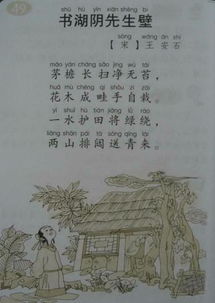 49
shū hú yīn xiān shēng bì
书湖阴先生壁
sòng wáng ān shí
【宋】王安石
máo yán cháng sǎo jìng wú tái
茅檐长扫净无苔，
huā mù chéng qí shǒu zì zāi
花木成畦手自栽。
yì shuǐ hù tián jiāng lǜ rào
一水护田将绿绕，
liǎng shān pái tà sòng qīng lái
两山排闼送青来。